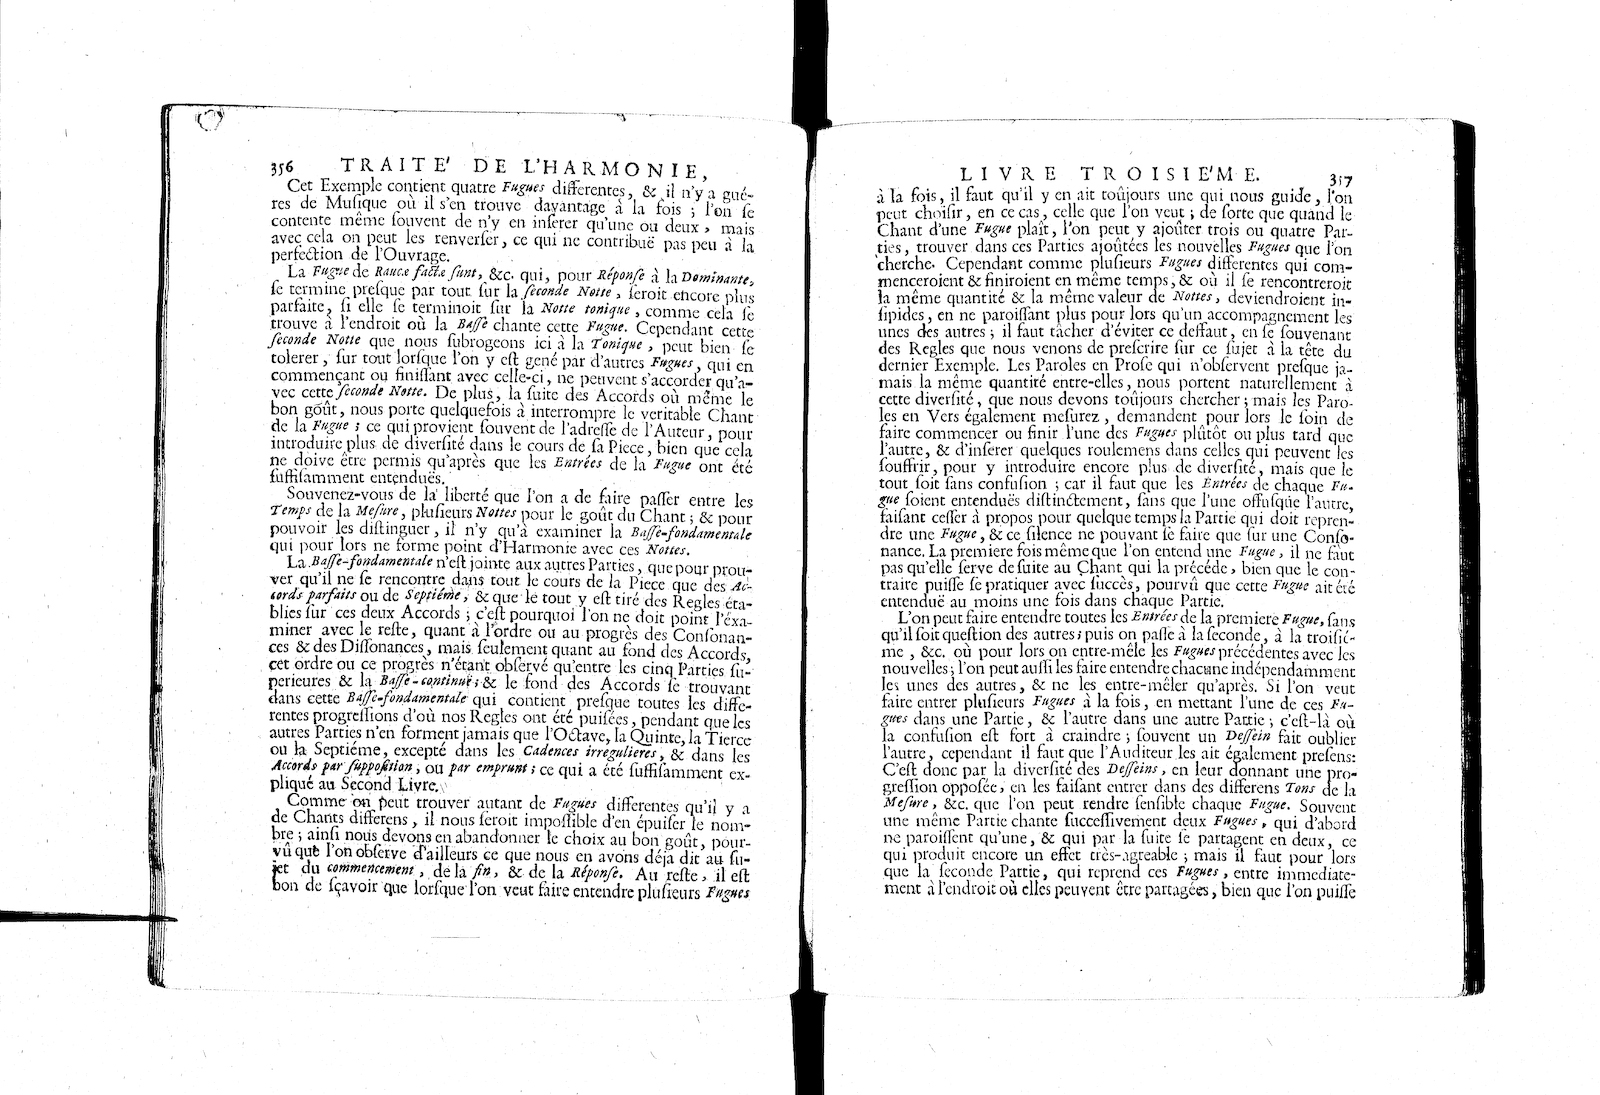 356 TRAITE' DE L'HARMONIE,
Cet Exemple contient quatre Fugues differentes, & il n'y a gué-
res de Musique où il s'en trouve davantage à la fois ; l'on se
contente même souvent de n'y en inserer qu'une ou deux, mais
avec cela on peut les renverser, ce qui ne contribuë pas peu à la
perfection de l'Ouvrage.
La Fugue de Raucæ factæ sunt, &c. qui, pour Réponse à la Dominante,
se termine presque par tout sur la seconde Notte, seroit encore plus
parfaite, si elle se terminoit sur la Notte tonique, comme cela se
trouve à l'endroit où la Basse chante cette Fugue. Cependant cette
seconde Notte que nous subrogeons ici à la Tonique, peut bien se
tolerer, sur tout lorsque l'on y est gené par d'autres Fugues, qui en
commençant ou finissant avec celle-ci, ne peuvent s'accorder qu'a-
vec cette seconde Notte. De plus, la suite des Accords où même le
bon goût, nous porte quelquefois à interrompre le veritable Chant
de la Fugue ; ce qui provient souvent de l'adresse de l'Auteur, pour
introduire plus de diversité dans le cours de sa Piece, bien que cela
ne doive être permis qu'après que les Entrées de la Fugue ont été
suffisamment entenduës.
Souvenez-vous de la liberté que l'on a de faire passer entre les
Temps de la Mesure, plusieurs Nottes pour le goût du Chant ; & pour
pouvoir les distinguer, il n'y qu'à examiner la Basse-fondamentale
qui pour lors ne forme point d'Harmonie avec ces Nottes.
La Basse-fondamentale n'est jointe aux autres Parties, que pour prou-
ver qu'il ne se rencontre dans tout le cours de la Piece que des Ac-
cords parfaits ou de Septiéme, & que le tout y est tiré des Regles éta-
blies sur ces deux Accords ; c'est pourquoi l'on ne doit point l'éxa-
miner avec le reste, quant à l'ordre ou au progrès des Consonan-
ces & des Dissonances, mais seulement quant au fond des Accords,
cet ordre ou ce progrès n'étant observé qu'entre les cinq Parties su-
perieures & la Basse-continuë ; & le fond des Accords se trouvant
dans cette Basse-fondamentale qui contient presque toutes les diffe-
rentes progressions d'où nos Regles ont été puisées, pendant que les
autres Parties n'en forment jamais que l'Octave, la Quinte, la Tierce
ou la Septiéme, excepté dans les Cadences irregulieres, & dans les
Accords par supposition, ou par emprunt ; ce qui a été suffisamment ex-
pliqué au Second Livre.
Comme on peut trouver autant de Fugues differentes qu'il y a
de Chants differens, il nous seroit impossible d'en épuiser le nom-
bre ; ainsi nous devons en abandonner le choix au bon goût, pour-
vû que l'on observe d'ailleurs ce que nous en avons déja dit au su-
jet du commencement, de la fin, & de la Réponse. Au reste, il est
bon de sçavoir que lorsque l'on veut faire entendre plusieurs Fugues
LIVRE TROISIE'ME. 357
à la fois, il faut qu'il y en ait toûjours une qui nous guide, l'on
peut choisir, en ce cas, celle que l'on veut ; de sorte que quand le
Chant d'une Fugue plaît, l'on peut y ajoûter trois ou quatre Par-
ties, trouver dans ces Parties ajoûtées les nouvelles Fugues que l'on
cherche. Cependant comme plusieurs Fugues differentes qui com-
menceroient & finiroient en même temps, & où il se rencontreroit
la même quantité & la même valeur de Nottes, deviendroient in-
sipides, en ne paroissant plus pour lors qu'un accompagnement les
unes des autres ; il faut tâcher d'éviter ce deffaut, en se souvenant
des Regles que nous venons de prescrire sur ce sujet à la tête du
dernier Exemple. Les Paroles en Prose qui n'observent presque ja-
mais la même quantité entre-elles, nous portent naturellement à
cette diversité, que nous devons toûjours chercher ; mais les Paro-
les en Vers également mesurez, demandent pour lors le soin de
faire commencer ou finir l'une des Fugues plûtôt ou plus tard que
l'autre, & d'inserer quelques roulemens dans celles qui peuvent les
souffrir, pour y introduire encore plus de diversité, mais que le
tout soit sans confusion ; car il faut que les Entrées de chaque Fu-
gue soient entenduës distinctement, sans que l'une offusque l'autre,
faisant cesser à propos pour quelque temps la Partie qui doit repren-
dre une Fugue, & ce silence ne pouvant se faire que sur une Conso-
nance. La premiere fois même que l'on entend une Fugue, il ne faut
pas qu'elle serve de suite au Chant qui la précéde, bien que le con-
traire puisse se pratiquer avec succès, pourvû que cette Fugue ait été
entenduë au moins une fois dans chaque Partie.
L'on peut faire entendre toutes les Entrées de la premiere Fugue, sans
qu'il soit question des autres ; puis on passe à la seconde, à la troisié-
me, &c. où pour lors on entre-mêle les Fugues précédentes avec les
nouvelles ; l'on peut aussi les faire entendre chacune indépendamment
les unes des autres, & ne les entre-mêler qu'après. Si l'on veut
faire entrer plusieurs Fugues à la fois, en mettant l'une de ces Fu-
gues dans une Partie, & l'autre dans une autre Partie ; c'est-là où
la confusion est fort à craindre ; souvent un Dessein fait oublier
l'autre, cependant il faut que l'Auditeur les ait également presens:
C'est donc par la diversité des Desseins, en leur donnant une pro-
gression opposée, en les faisant entrer dans des differens Tons de la
Mesure, &c. que l'on peut rendre sensible chaque Fugue. Souvent
une même Partie chante successivement deux Fugues, qui d'abord
ne paroissent qu'une, & qui par la suite se partagent en deux, ce
qui produit encore un effet très-agreable ; mais il faut pour lors
que la seconde Partie, qui reprend ces Fugues, entre immediate-
ment à l'endroit où elles peuvent être partagées, bien que l'on puisse